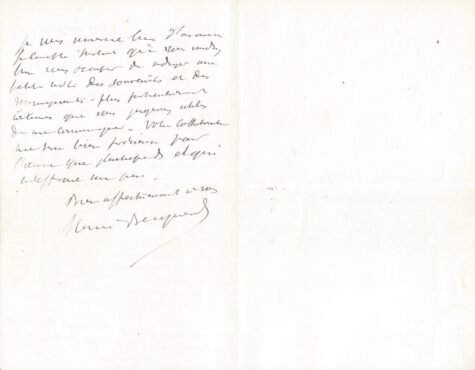 Je vous remercie bien d'
que vous voulez
bien vous occuper de rédiger une
petite note des souvenirs et des
plus particulièrement
intimes que vous jugerez utiles
de me communiquer. Votre collaboration
me sera bien précieuse pour
l'œuvre que j'entreprends et qui
un peu.
Bien affectueusement à vous
Henri Becquerel